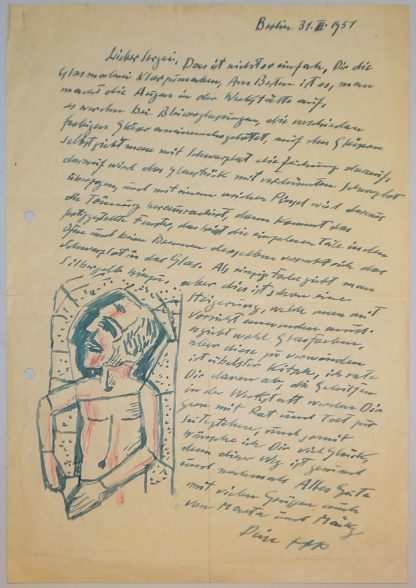 Berlin 31.III.1951
Lieber Sergei, Das ist nicht so einfach, Dir die
Glasmalerei klarzumachen, Am Besten ist es, man
macht die Augen in der Werkstätte auf.
es werden bei Bleiverglasungen, die verschieden
farbigen Gläser aneinandergelötet, auf den Gläsern
selbst gibt man mit Schwarzlot die Zeichnung darauf,
darauf wird das Glasstück mit verdünnten Schwarzlot
überzogen, und mit einem weichen Pinsel wird daraus
die Tönung herausradiert, dann kommt das
fertiggestellte Fenster, das heist die einzelnen Teile in den
Ofen und beim Brennen desselben
Schwarzlot in das Glas. Als einzige Farbe gibt man
Silbergelb hinzu,
aber dies ist schon eine
Steigerung, welche man mit
Vorsicht anwenden muss.
es gibt wohl Glasfarben,
aber diese zu verwenden
ist übelster Kitsch, ich rate
Dir davon ab, die Gehilfen
in der Werkstatt werden Dir
gern mit Rat und Tat zur
Seite stehen, und somit
wünsche ich Dir viel Glück,
denn dieser Weg ist gesund
und nochmals Alles Gute
mit vielen Grüssen auch
von Marta und
Dein